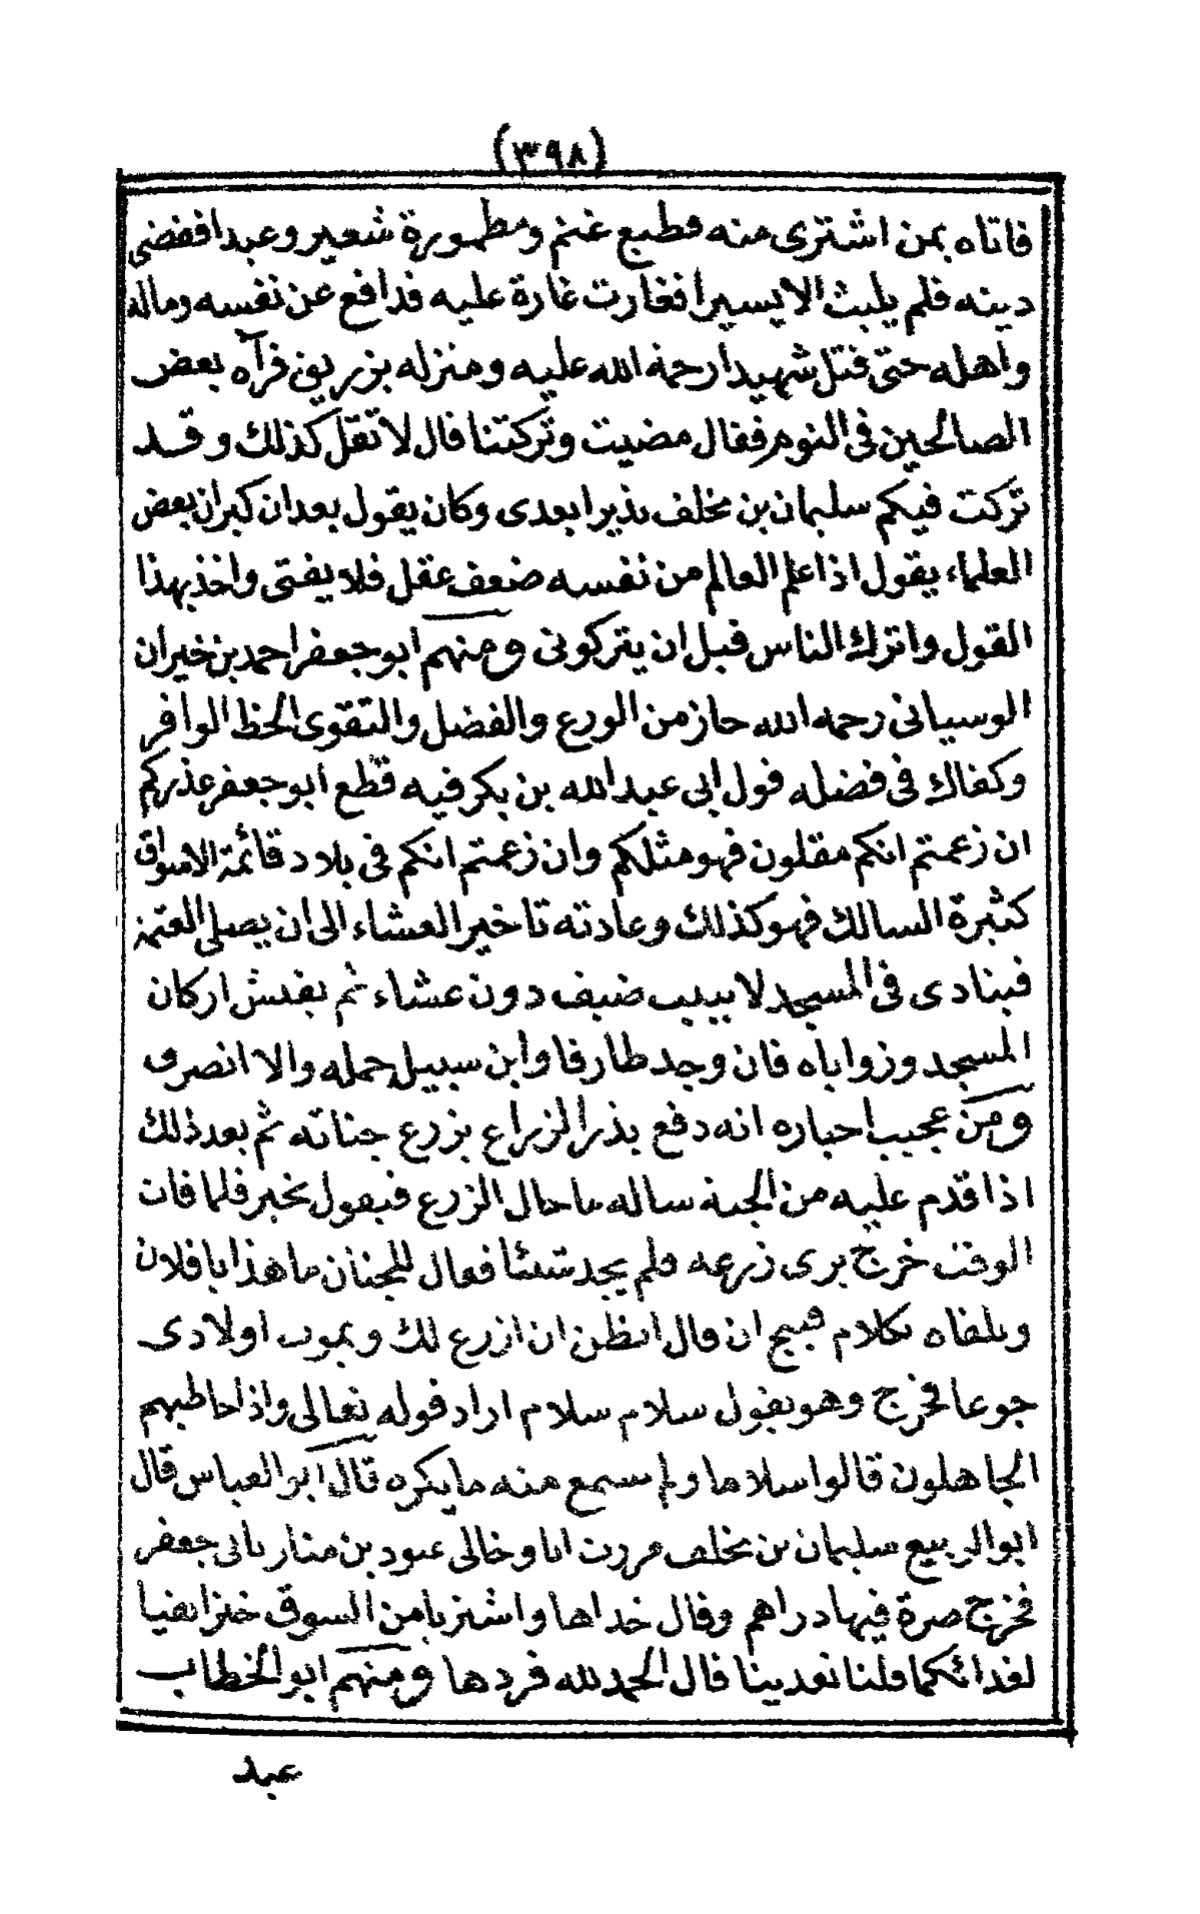 (٣٩٨)
فاتاه بمن اشترى منه قطيع غنم ومطمورة شعير وعبدا فقضى
دينه فلم يلبث الا يسيرا فغارت غارة عليه فدافع عن نفسه وماله
واهله حتى قتل شهيدا رحمة الله عليه ومنزله بزريق فرآه بعض
الصالحين فى النوم فقال مضيت وتركتنا قال لا تقل كذلك وقد
تركت فيكم سليمان بن مخلف نذيرا بعدى وكان يقول بعد ان كبر ان بعض
العلماء يقول اذا علم العالم من نفسه ضعف عقل فلا يفتى واخذ بهذا
القول واترك الناس قبل ان يتركونى ومنهم ابو جعفر احمد بن خيران
الوسيانى رحمه الله حاز من الورع والفضل والتقوى الحظ الوافر
وكفاك فى فضله قول ابى عبد الله بن بكر فيه قطع ابو جعفر عذركم
ان زعمتم انكم مقلون فهو مثلكم وان زعمتم انكم فى بلاد قائمة الاسواق
كثيرة السالك فهو كذلك وعادته تاخير العشاء الى ان يصلى العتمة
فينادى فى المسجد لا يبيت ضيف دون عشاء ثم يفتش اركان
المسجد وزواياه فان وجد طارقا وابن سبيل حمله والا انصرف
ومن عجيب اخباره انه دفع بذر الزراع بزرع جناته ثم بعد ذلك
اذا قدم عليه من الجنة ساله ما حال الزرع فيقول بخير فلما فات
الوقت خرج يرى زرعه فلم يجد شيئا فقال للجنان ما هذا يا فلان
وتلقاه بكلام قبيح ان قال اتظن ان ازرع لك ويموت اولادى
جوعا فخرج وهو يقول سلام سلام اراد قوله تعالى واذا خاطبهم
الجاهلون قالوا سلاما ولم يسمع منه ما يكره قال ابو العباس قال
ابو الربيع سليمان بن مخلف مررت انا وخالى عبود بن منار بابى جعفر
فخرج صرة فيها دراهم وقال خداها واشتريا من السوق خبزا نقيا
لغدائكما قلنا تغدينا قال الحمد لله فردها ومنهم ابو الخطاب
عبد